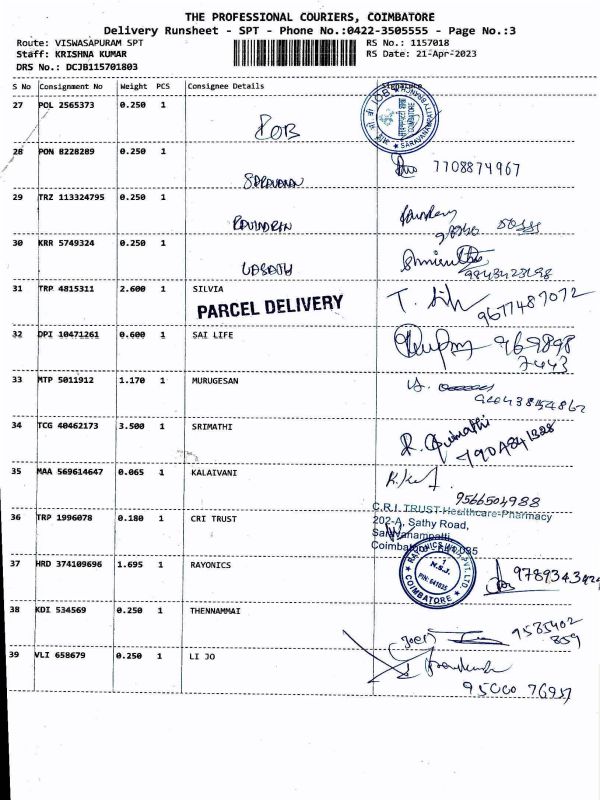 THE PROFESSIONAL COURIERS, COIMBATORE
Delivery Runsheet - SPT - Phone No.:0422-3505555 - Page No.:3
Route: VISWASAPURAM SPT RS No.: 1157018
Staff: KRISHNA KUMAR RS Date: 21-Apr-2023
DRS No.: DCJB115701803
S No Consignment No Weight PCS Consignee Details Signature
27 POL 2565373 0.250 1
IOB
SARAVANAMPATTY BRANCH
COIMBATORE
28 PON 8228289 0.250 1
SARAVANAN 7708874967
29 TRZ 113324795 0.250 1
RAVINDREN
30 KRR 5749324 0.250 1
31 TRP 4815311 2.600 1 SILVIA
PARCEL DELIVERY
9677487072
32 DPI 10471261 0.600 1 SAI LIFE
969898
7443
33 MTP 5011912 1.170 1 MURUGESAN
34 TCG 40462173 3.500 1 SRIMATHI
35 MAA 569614647 0.065 1 KALAIVANI
9566504988
36 TRP 1996078 0.180 1 CRI TRUST
C.R.I. TRUST-Healthcare-Pharmacy
202-A, Sathy Road,
Saravanampatti,
Coimbatore - 641 035
37 HRD 374109696 1.695 1 RAYONICS
N.S.J.
PIN:641035
COIMBATORE
38 KDI 534569 0.250 1 THENNAMMAI
(Joel) 9585402
859
39 VLI 658679 0.250 1 LI JO
95000 76957